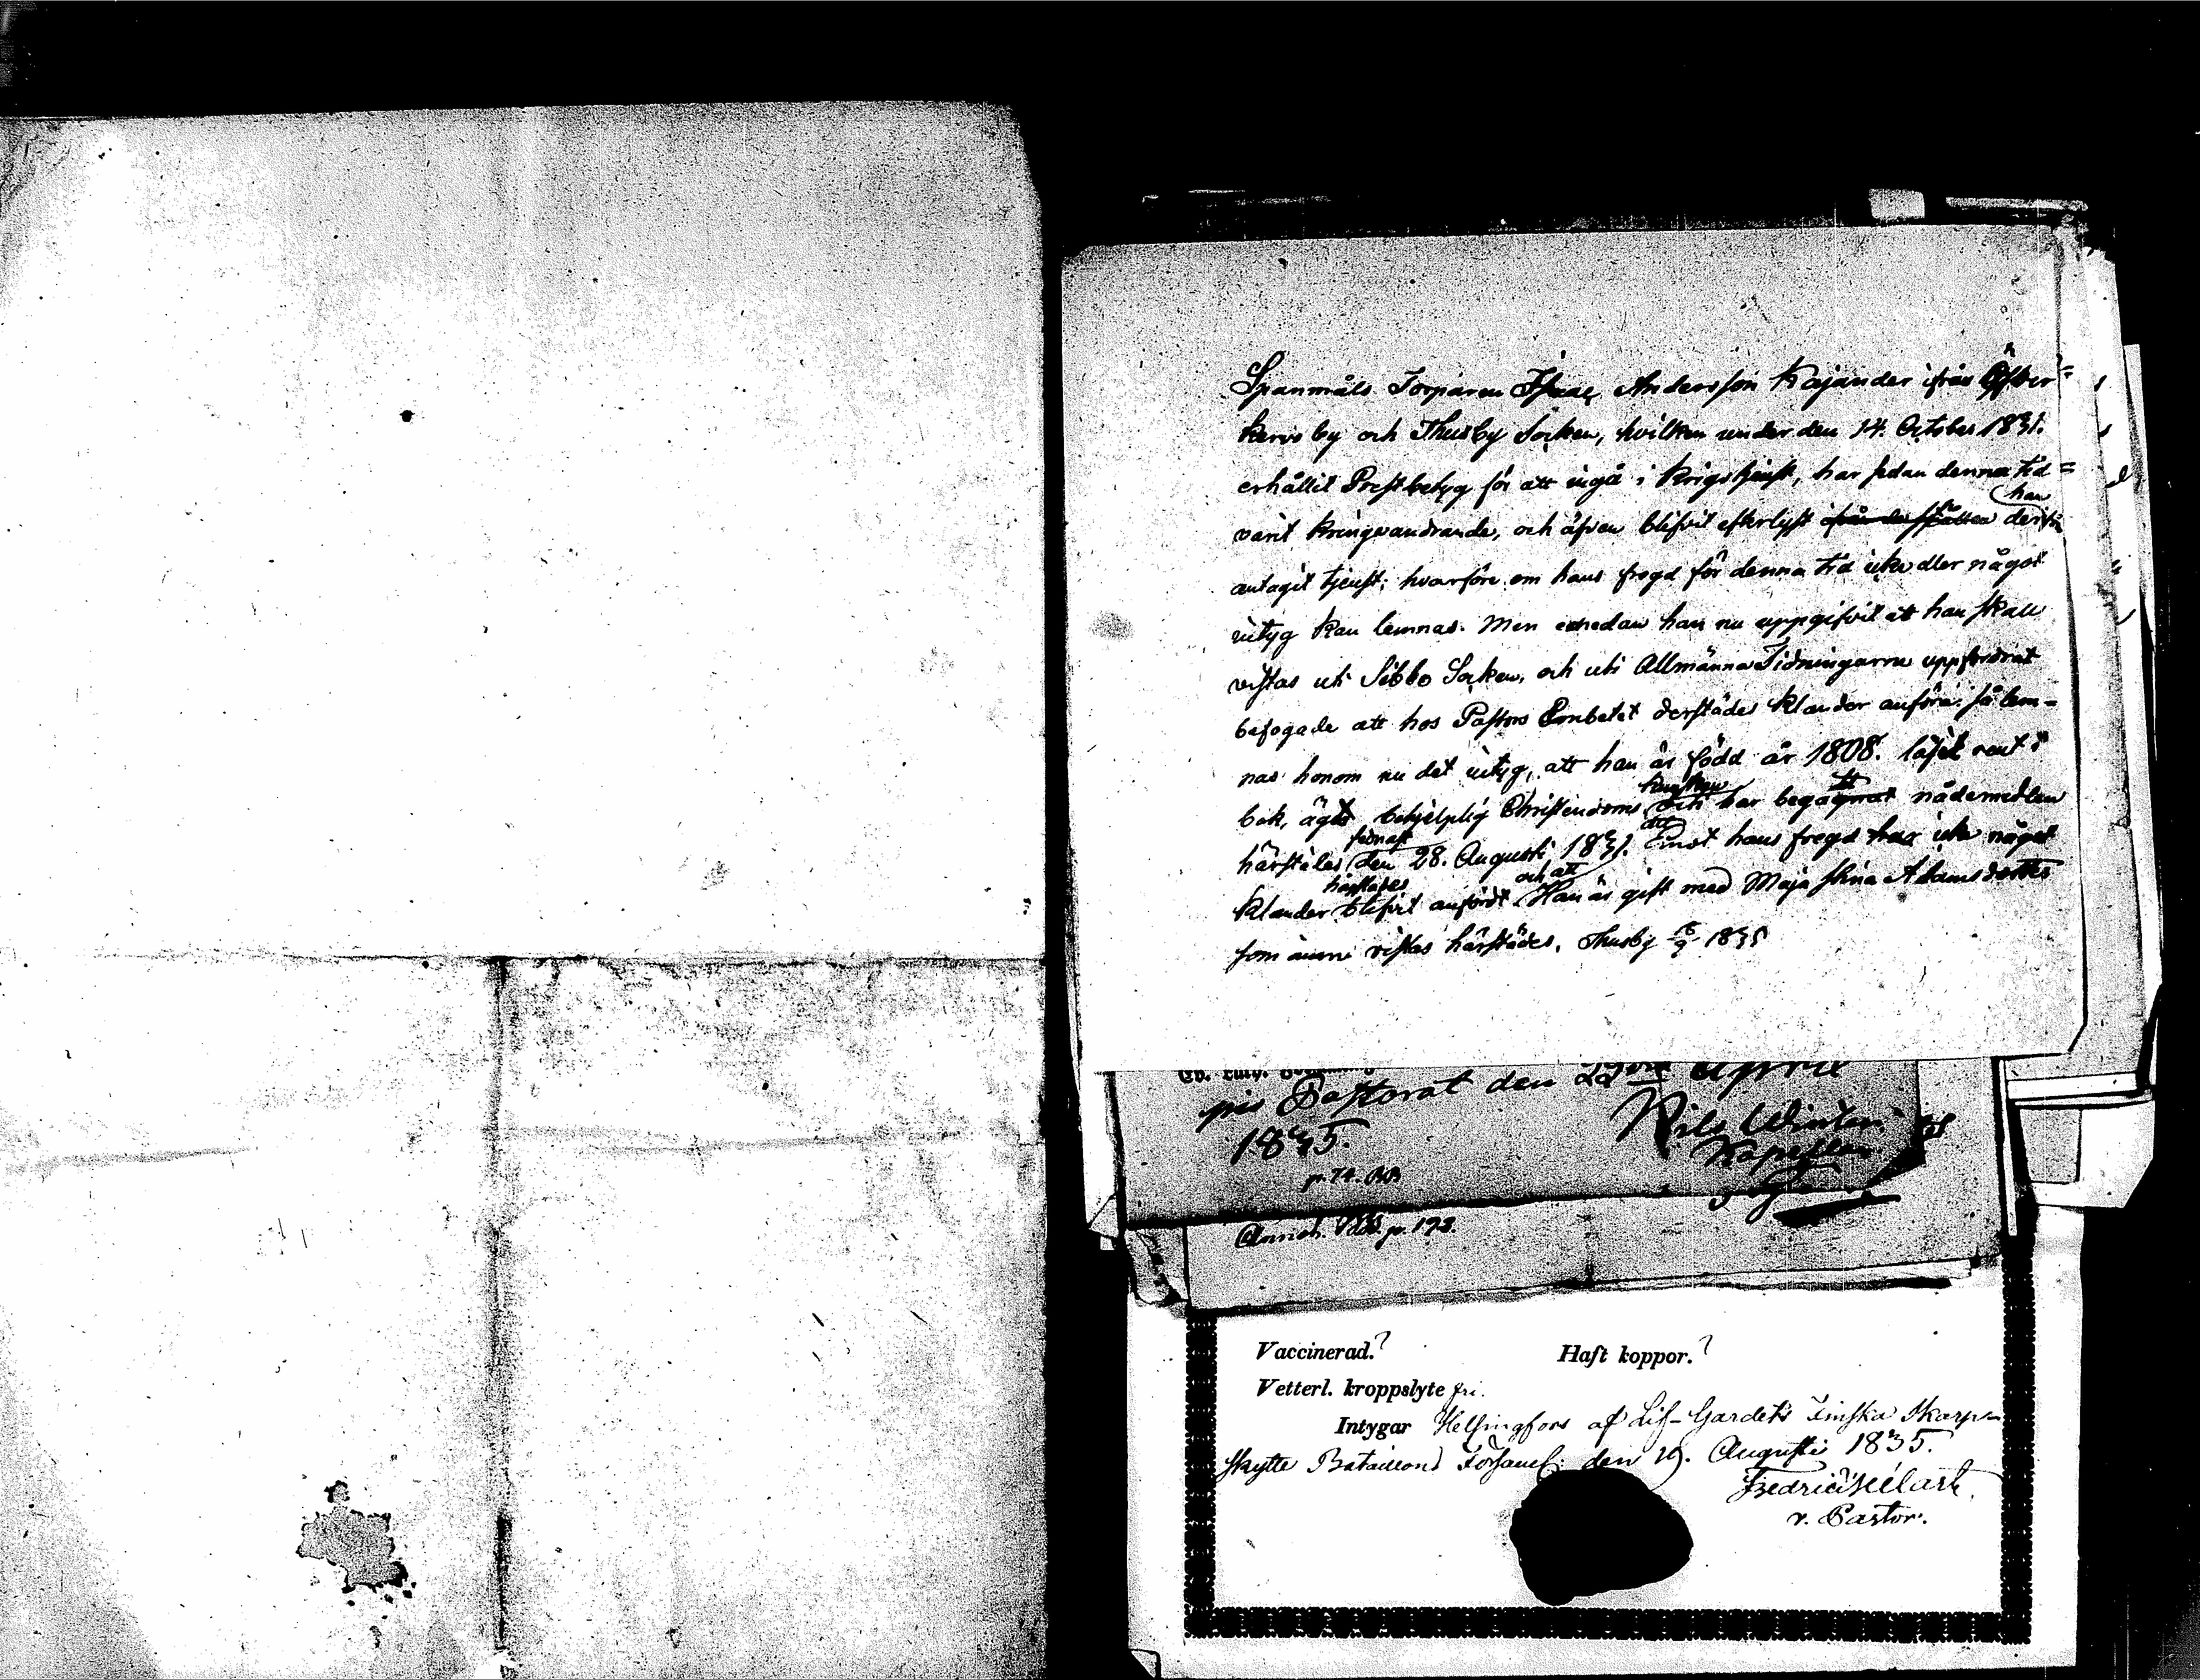 Spanmåls Torparen Isaac Andersson Kajander ifrån Öfver=
kervo by och Thusby Socken, hvilken under den 14. October 1831.
erhållit Prestbetyg för att ingå i Krigstjenst, har sedan denna tid =
varit kringvandrande, och äfven blifvit efterlyst han
antagit tjenst; hvarföre om hans fregd för denna tid icke eller något
intyg kan lemnas. Men emedan han nu uppgifvit att han skall
vistas uti Sibbo Socken, och uti Allmänna Tidningarne uppfordrat
befogade att hos Pastors Embetet derstädes klander anföra; så lem-
nas honom nu det intyg, att han är född år 1808. läser rent i
bok, äger behjelplig Christendoms kunskap och har begått nådemedlen
härstädes sednast den 28. Augusti 1831. att Emot hans fregd icke något
klander härstädes blifvit anfördt och att Han är gift med Maja Stina Adamsdotter
som ännu vistas härstädes. Thusby 1835
pis Pastorat den 29 April
1835. Nils
Kapellan
p. 74.
p. 173.
Vaccinerad.? Haft koppor.?
Vetterl. kroppslyte fri.
Intygar Helsingfors af Lif-Gardets Finska Skarp-
skytte Bataillons Församl: den 19. Augusti 1835.
v. Pastor.